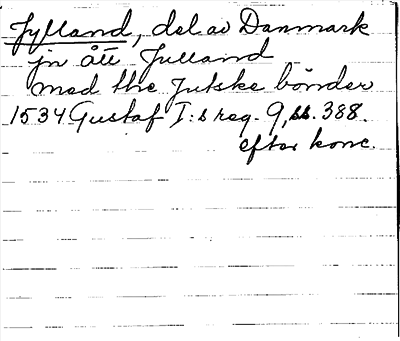 Jylland, del av Danmark
jn ått Julland
med the Jutske bönder
1534 Gustaf I:s reg. 9, ss. 388.
efter konc.